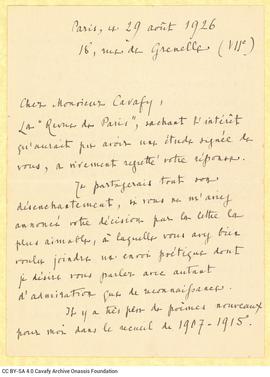 Paris, le 29 août 1926
18, rue de Grenelle (VIIe)
Cher Monsieur Cavafy,
La "Revue de Paris", sachant l'intérêt
qu'aurait pu avoir une étude signée de
vous, a vivement regretté votre réponse.
Je partagerais tout son
désenchantement, si vous ne m'aviez
annoncé votre décision par la lettre la
plus aimable, à laquelle vous avez bien
voulu joindre un envoi poétique dont
je désire vous parler avec autant
d'admiration que de reconnaissance.
Il y a très peu de poèmes nouveaux
pour moi dans le recueil de 1907-1915.
CC BY-SA 4.0 Cavafy Archive Onassis Foundation